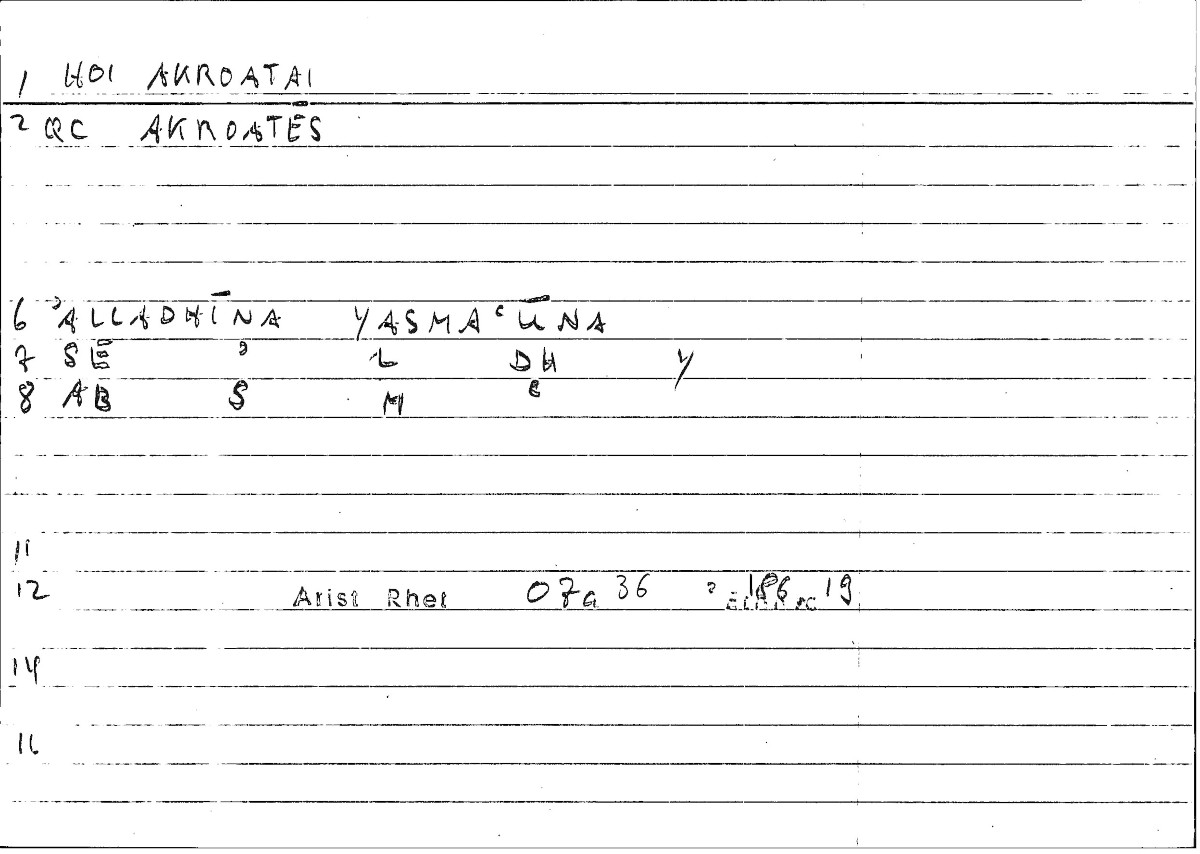 1 HOI AKROATAI
2 QC AKROATĒS
6 ʾALLADHĪNA YASMAʿŪNA
7 SE ʾ L DH Y
8 AB S M ʿ
11
12 Arist Rhet 07a 36 186 19
14
16